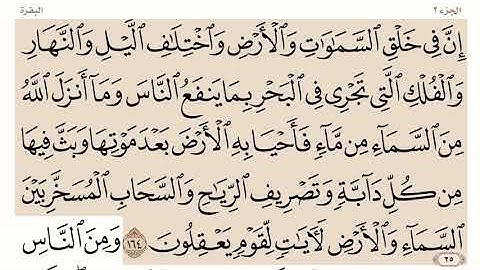 الجزء ٢ البقرة
إِنَّ فِي خَلْقِ السَّمَوَاتِ وَالْأَرْضِ وَاخْتِلَافِ اللَّيْلِ وَالنَّهَارِ
وَالْفُلْكِ الَّتِي تَجْرِي فِي الْبَحْرِ بِمَا يَنفَعُ النَّاسَ وَمَا أَنزَلَ اللَّهُ
مِنَ السَّمَاءِ مِن مَّاءٍ فَأَحْيَا بِهِ الْأَرْضَ بَعْدَ مَوْتِهَا وَبَثَّ فِيهَا
مِن كُلِّ دَابَّةٍ وَتَصْرِيفِ الرِّيَاحِ وَالسَّحَابِ الْمُسَخَّرِ بَيْنَ
السَّمَاءِ وَالْأَرْضِ لَآيَاتٍ لِّقَوْمٍ يَعْقِلُونَ ١٦٤ وَمِنَ النَّاسِ
٢٥